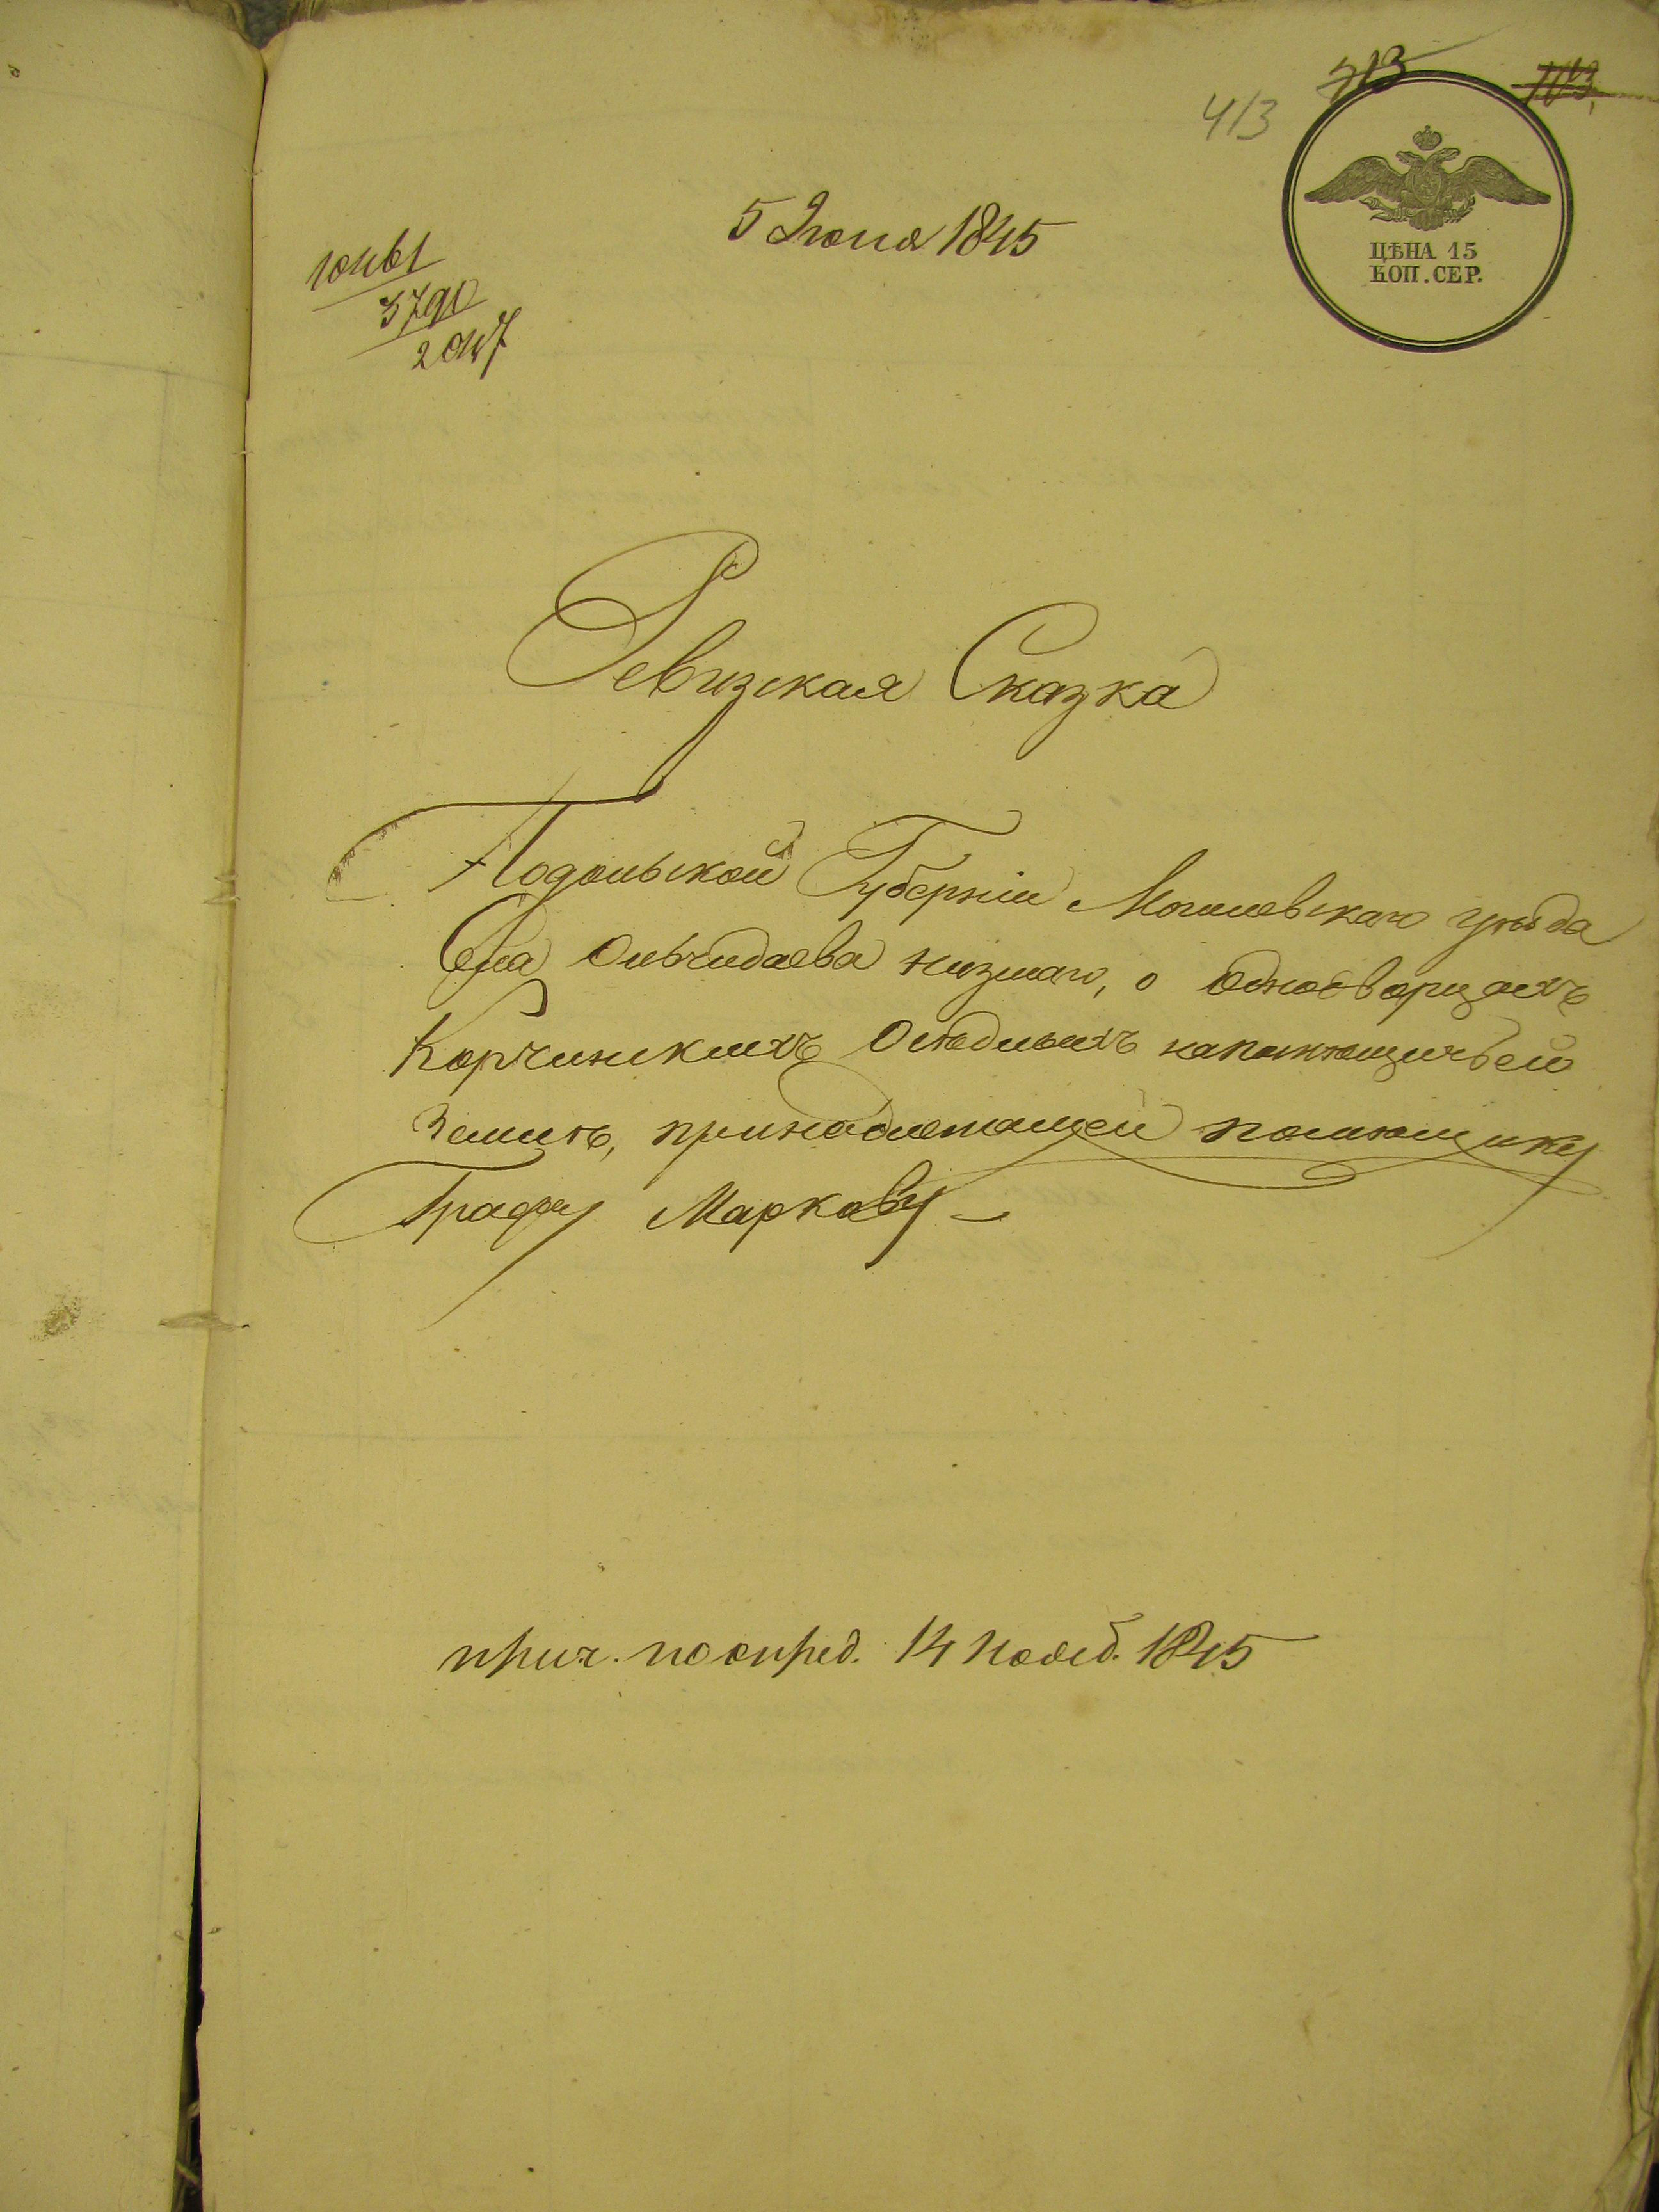 413
713
ЦѢНА 15
КОП. СЕР.
5 Июня 1845
10461
3790
2047
Ревизская Сказка
Подольской Губерніи Могилевскаго уѣзда
Села Ольчидаева низшаго, о Однодворцахъ
Корчинскихъ Осѣдлыхъ на помѣщичьей
Землѣ, принадлежащей помѣщику
Графу Маркову
прич. по опред. 14 нояб. 1845